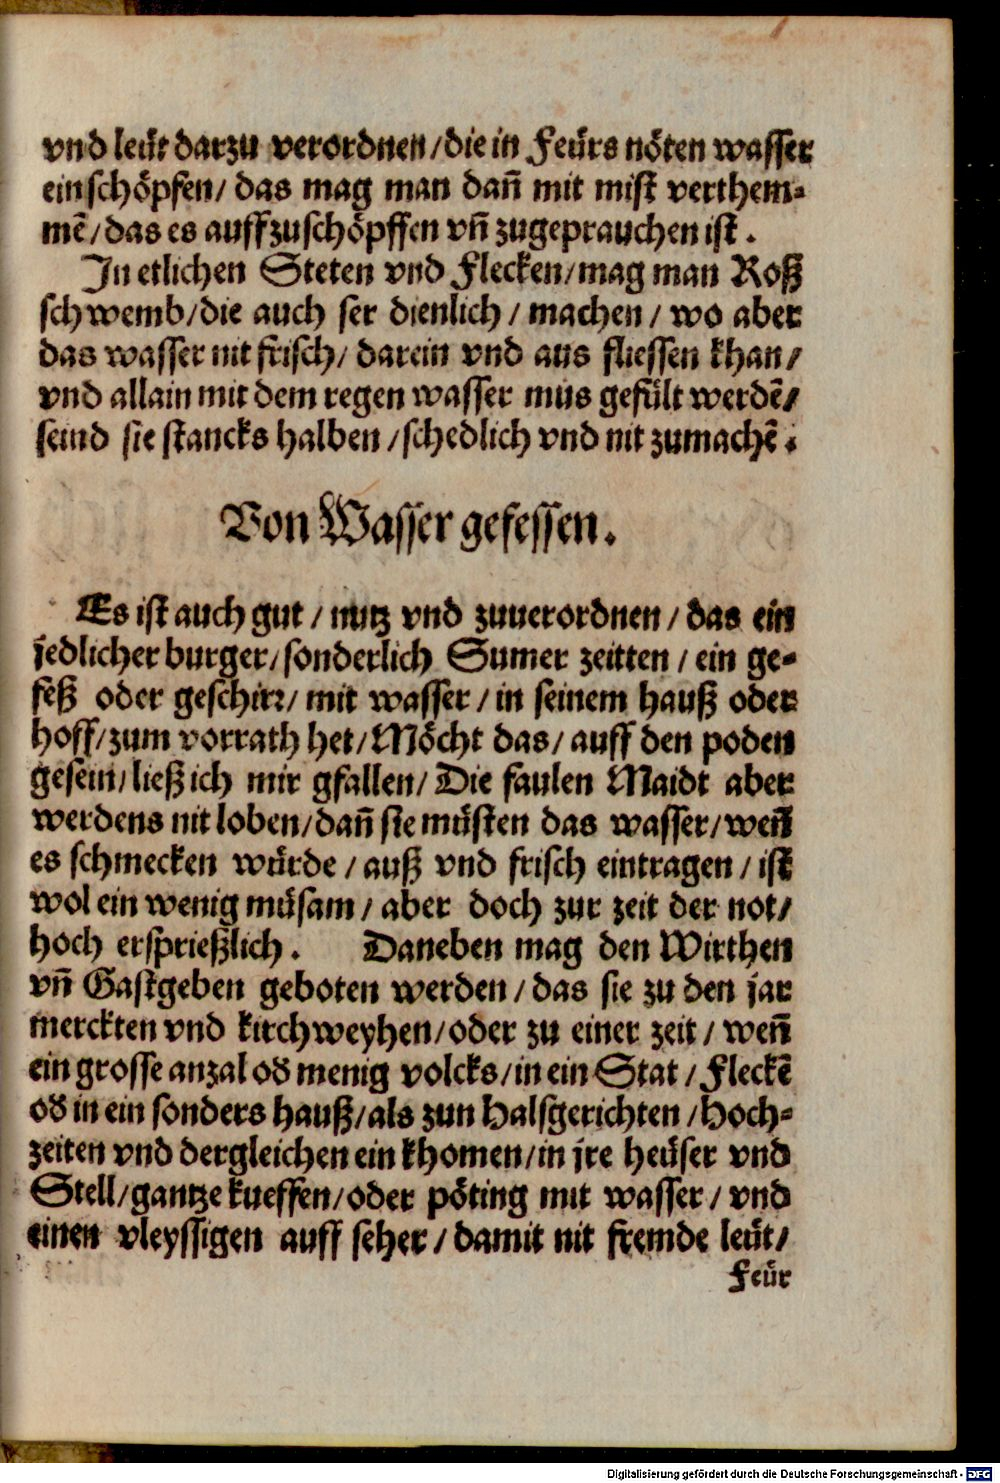 vnd leüt darzu verordnen / die in Feürs nöten wasser
ein schöpfen / das mag man dañ mit mist verthem⸗
mē / das es auffzuschöpffen vñ zugeprauchen ist .
In etlichen Steten vnd Flecken / mag man Roß
schwemb / die auch ser dienlich / machen / wo aber
das wasser nit frisch / darein vnd aus fliessen khan /
vnd allain mit dem regen wasser mus gefült werdē /
seind sie stancks halben / schedlich vnd nit zumachē .
Von Wasser gefessen .
Es ist auch gut / nutz vnd zuuerordnen / das ein
jedlicher burger / sonderlich Sumer zeitten / ein ge⸗
feß oder geschirr / mit wasser / in seinem hauß oder
hoff / zum vorrath het / Möcht das / auff den poden
gesein / ließ ich mir gfallen / Die faulen Maidt aber
werdens nit loben / dañ sie müsten das wasser / weñ
es schmecken würde / auß vnd frisch eintragen / ist
wol ein wenig müsam / aber doch zur zeit der not /
hoch ersprießlich . Daneben mag den Wirthen
vñ Gastgeben geboten werden / das sie zu den jar
merckten vnd kirchweyhen / oder zu einer zeit / weñ
ein grosse anzal od menig volcks / in ein Stat / Fleckē
od in ein sonders hauß / als zun Halsgerichten / Hoch⸗
zeiten vnd dergleichen ein khomen / in jre heüser vnd
Stell / gantze kueffen / oder pöting mit wasser / vnd
einen vleyssigen auff seher / damit nit fremde leüt /
Feür
Digitalisierung gefördert durch die Deutsche Forschungsgemeinschaft - DFG